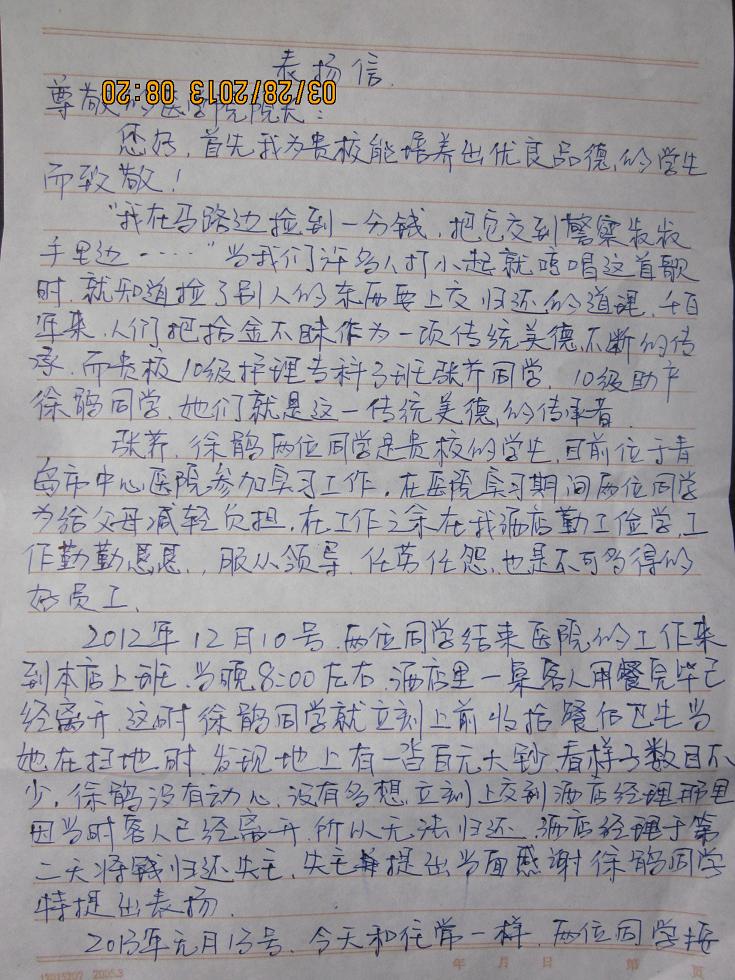 表扬信.
尊敬的医学院院长:
03/28/2013 08:20
您好,首先我为贵校能培养出优良品德的学生
而致敬!
“我在马路边捡到一分钱,把它交到警察叔叔
手里边……”当我们许多人打小起就唱这首歌
时,就知道捡了别人的东西要上交归还的道理,千百
年来,人们把拾金不昧作为一项传统美德,不断的传
承,而贵校10级护理专科3班张荞同学,10级助产
徐鹃同学,她们就是这一传统美德的传承者.
张荞,徐鹃两位同学是贵校的学生,目前位于青
岛市中心医院参加实习工作,在医院实习期间两位同学
为给父母减轻负担,在工作之余在我酒店勤工俭学,工
作勤勤恳恳,服从领导,任劳任怨,也是不可多得的
好员工,
2012年12月10号,两位同学结束医院的工作来
到本店上班,当晚8:00左右,酒店里一桌客人用餐完毕已
经离开,这时徐鹃同学就立刻上前收拾餐位卫生当
她在扫地时,发现地上有一沓百元大钞,看样子数目不
少,徐鹃没有动心,没有多想,立刻上交到酒店经理那里
因当时客人已经离开,所以无法归还,酒店经理于第
二天将钱归还失主,失主提出当面感谢徐鹃同学
特提出表扬.
2013年元月13号,今天和往常一样,两位同学接
15015207 2005.3 年 月 日 第 页